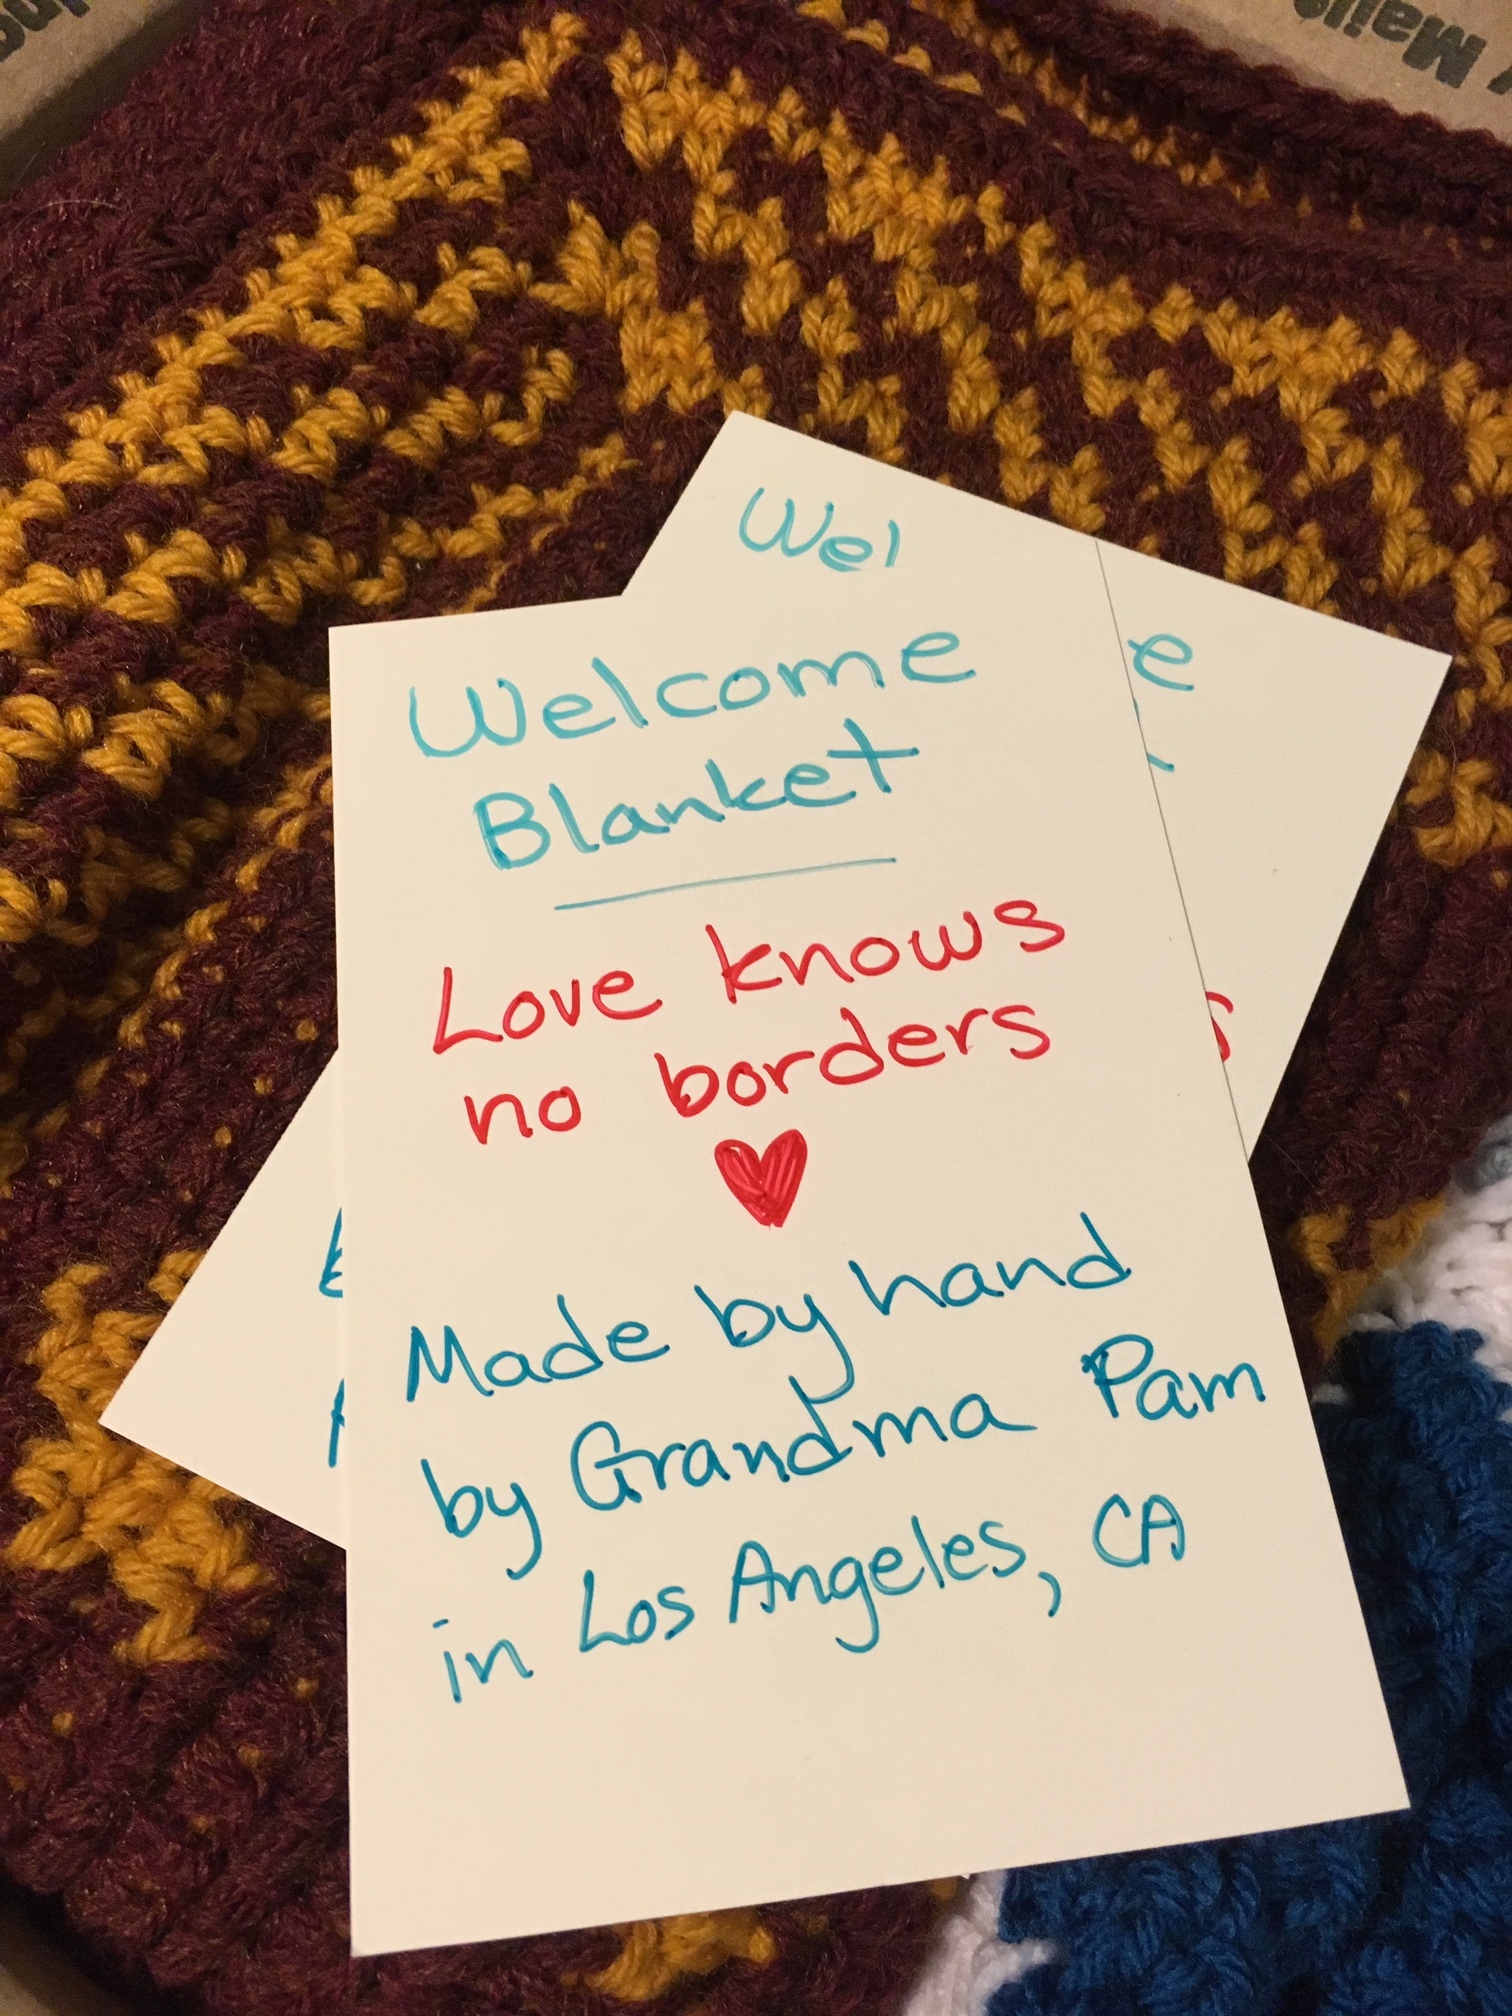 Welcome
Blanket
Love knows
no borders
Made by hand
by Grandma Pam
in Los Angeles, CA
Wel
e
s